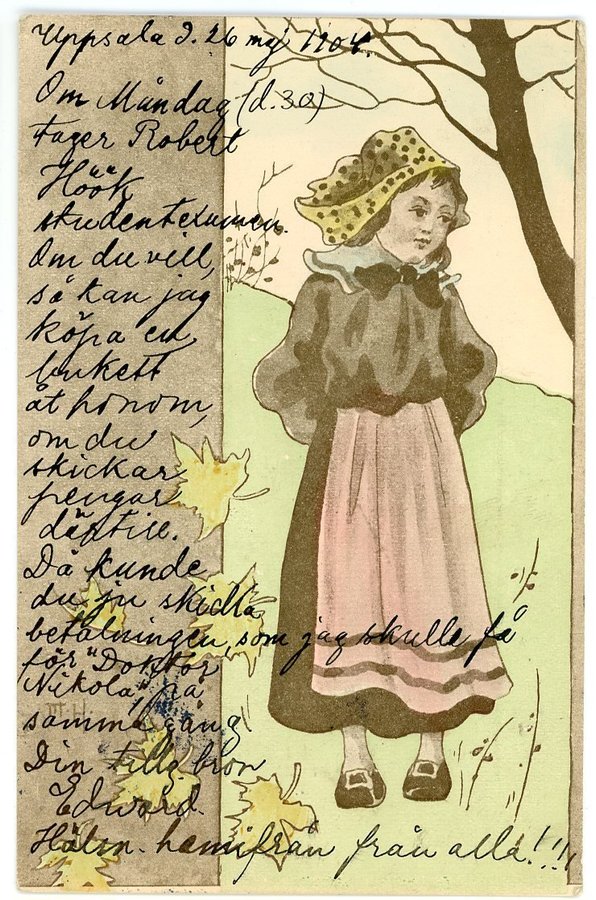 Uppsala d. 26 maj 1904.
Om Måndag (d. 30)
tager Robert
Höök
studentexamen.
Om du vill,
så kan jag
köpa en
bukett
åt honom,
om du
skickar
pengar
därtill.
Då kunde
du ju skicka
betalningen, som jag skulle få
för "Doktor
Nikola" på
samma gång.
Din tillg. bror
Edvard.
Hälsn. hemifrån från alla!!!